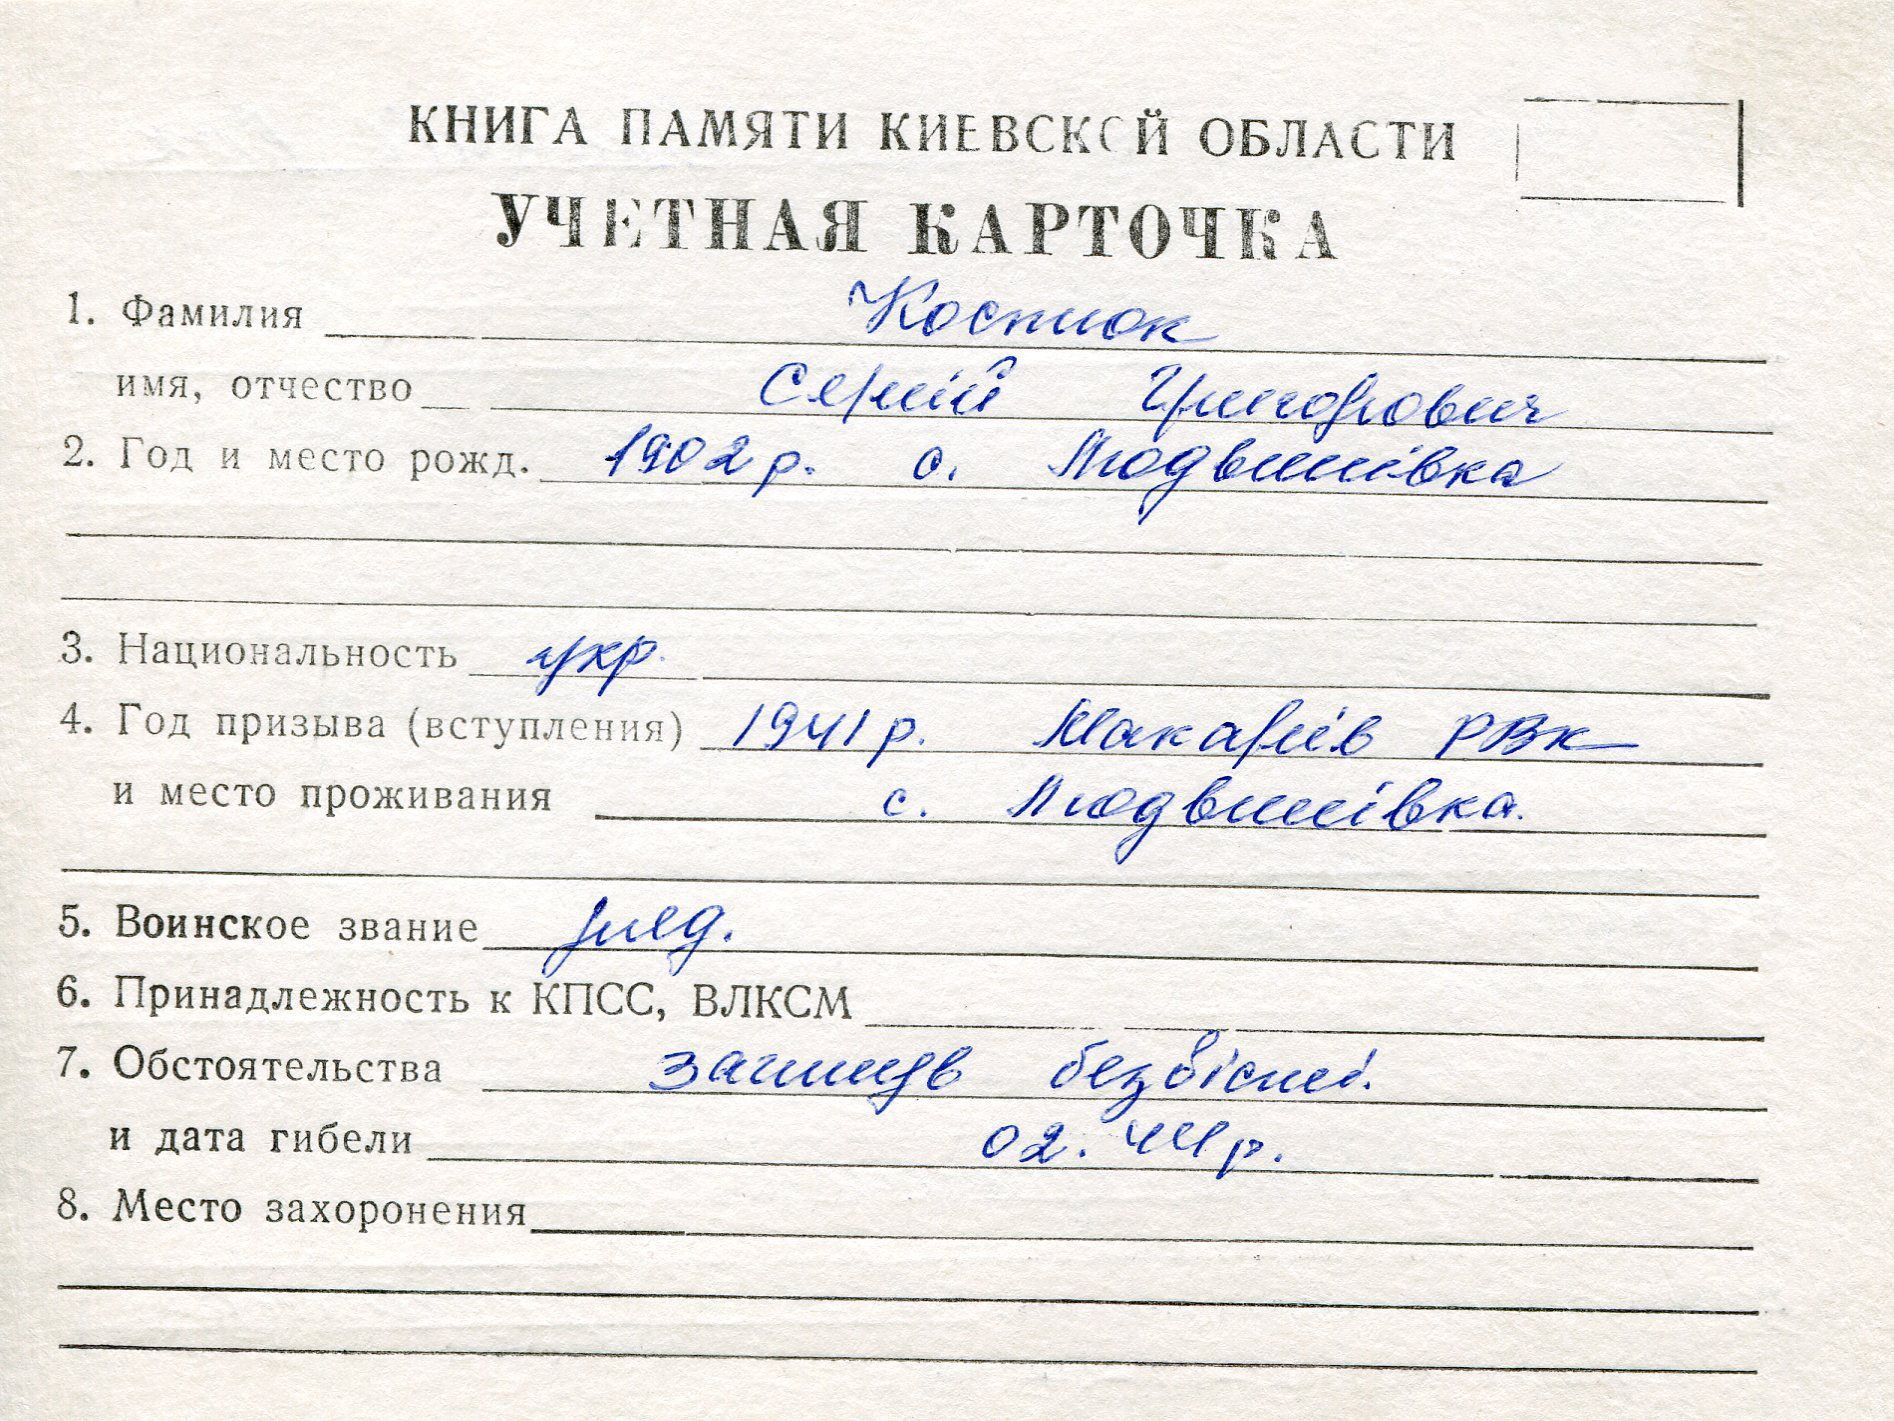 КНИГА ПАМЯТИ КИЕВСКОЙ ОБЛАСТИ
УЧЕТНАЯ КАРТОЧКА
1. Фамилия Костюк
имя, отчество Сергій Григорович
2. Год и место рожд. 1902 р. с. Людвинівка
3. Национальность укр.
4. Год призыва (вступления) 1941 р. Макарів РВК
и место проживания с. Людвинівка.
5. Воинское звание ряд.
6. Принадлежность к КПСС, ВЛКСМ
7. Обстоятельства загинув безвісті.
и дата гибели 02. 44 р.
8. Место захоронения